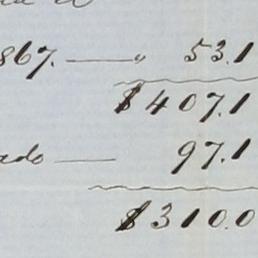 867. — " 53.1
$407.1
ado — 97.1
$310.0